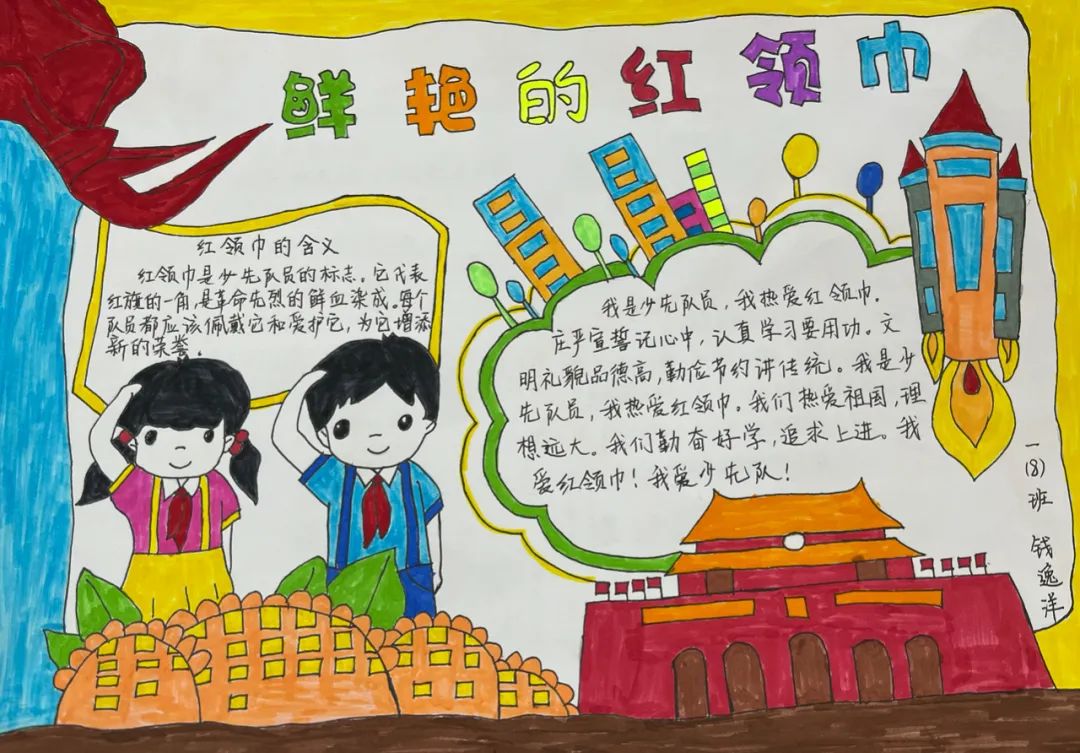 鲜艳的红领巾
红领巾的含义
红领巾是少先队员的标志。它代表
红旗的一角,是革命先烈的鲜血染成。每个
队员都应该佩戴它和爱护它,为它增添
新的荣誉。
我是少先队员,我热爱红领巾.
庄严宣誓记心中,认真学习要用功。文
明礼貌品德高,勤俭节约讲传统。我是少
先队员,我热爱红领巾。我们热爱祖国,理
想远大。我们勤奋好学,追求上进。我
爱红领巾!我爱少先队!
一(8)班 钱逸洋